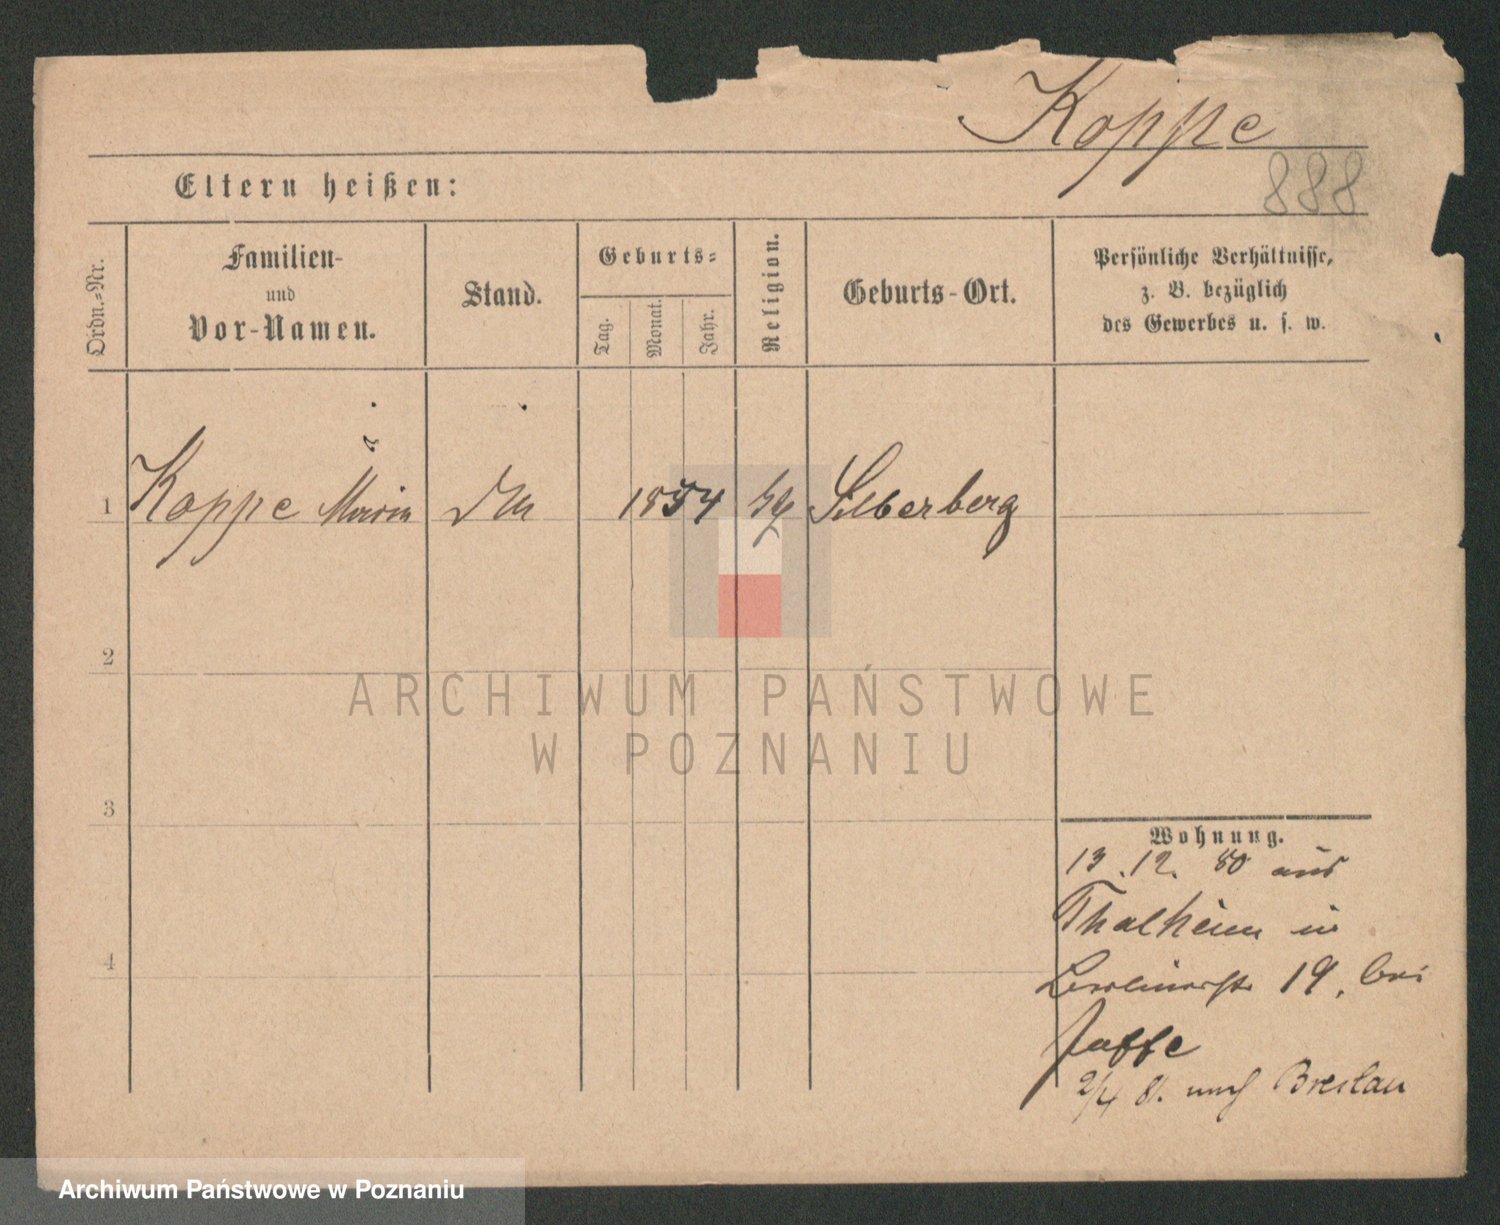 Koppe
888
Eltern heißen:
Ordn.=Nr.
Familien-
und
Vor-Namen.
Stand.
Geburts=
Tag.
Monat.
Jahr.
Religion.
Geburts-Ort.
Persönliche Verhältnisse,
z. B. bezüglich
des Gewerbes u. s. w.
1 Koppe Maria 1854 Silberberg
2
ARCHIWUM PAŃSTWOWE
W POZNANIU
3
4
Wohnung.
13.12. 80 aus
Thalheim in
Berlinerstr 19, bei
Jaffe
2/4 81. nach Breslau
Archiwum Państwowe w Poznaniu